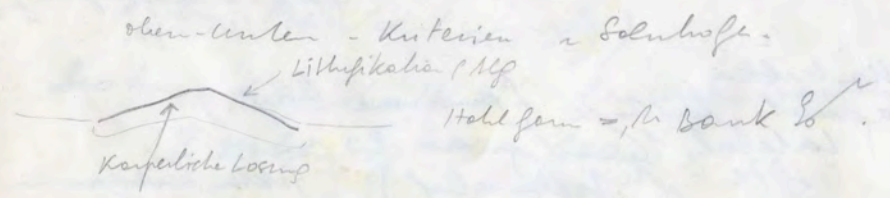 oben-unten - Kriterien ~ Solnhofen.
Lithifikation
Hohlform =, in Bank
Körperliche Lösung